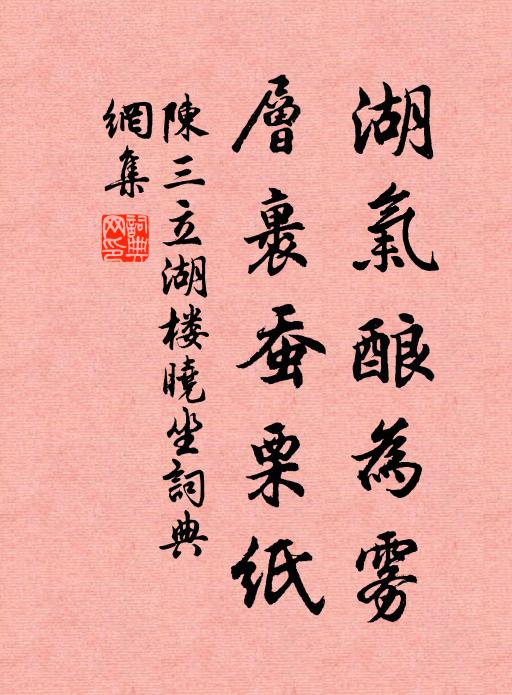 湖氣酿為雾
層裹蚕栗紙
陳三立湖楼曉坐詞典
網集
詞典網印